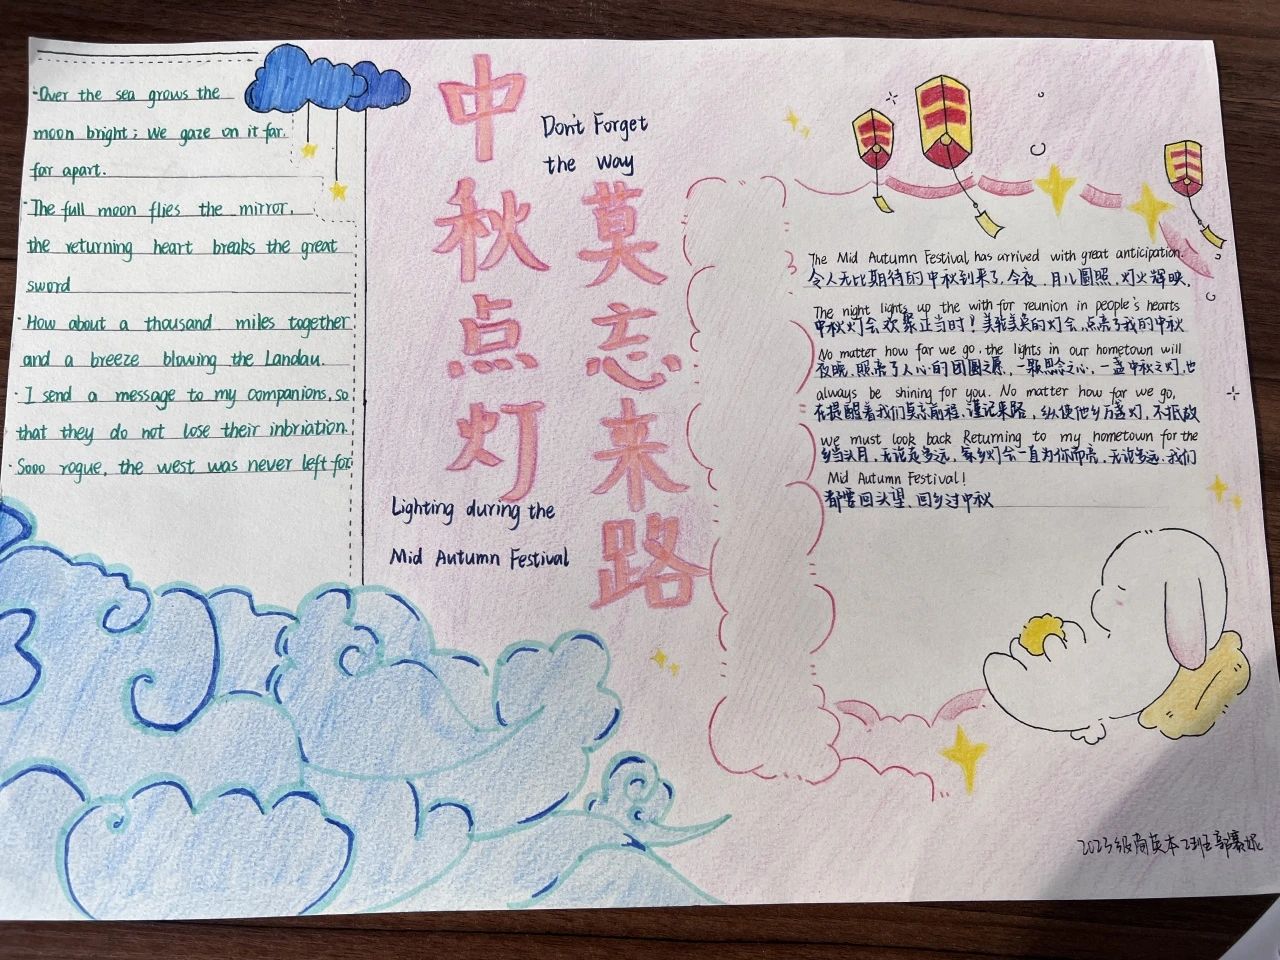 ·Over the sea grows the
moon bright; We gaze on it far.
far apart.
·The full moon flies the mirror,
the returning heart breaks the great
sword
·How about a thousand miles together
and a breeze blowing the Landau.
·I send a message to my companions, so
that they do not lose their inbriation.
·Sooo rogue, the west was never left for
中秋点灯
Don't Forget
the way
莫忘来路
Lighting during the
Mid Autumn Festival
The Mid Autumn Festival, has arrived with great anticipation.
令人无比期待的中秋到来了,今夜,月儿圆照,灯火辉映,
The night lights up the with for reunion in people's hearts
中秋灯会欢聚正当时!美轮美奂的灯会,点亮了我的中秋
No matter how far we go, the lights in our hometown will
夜晚,照亮了人心的团圆之愿,一颗思念之心,一盏中秋之灯,也
always be shining for you. No matter how far we go,
在提醒着我们点亮前程、谨记来路,纵使他乡万盏灯,不抵故
we must look back Returning to my hometown for the
乡当头月,无论走多远,家乡灯会一直为你而亮,无论多远,我们
Mid Autumn Festival!
都要回头望、回乡过中秋
2023级商英本2班